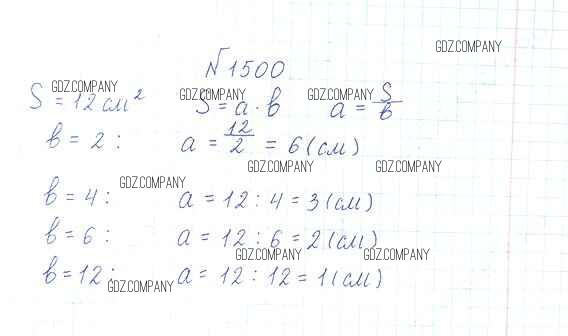 GDZ.COMPANY
№1500
GDZ.COMPANY GDZ.COMPANY GDZ.COMPANY
S = 12 см² S = a · b a = S/b
b = 2 : a = 12/2 = 6 (см)
GDZ.COMPANY GDZ.COMPANY
GDZ.COMPANY
b = 4 : a = 12 : 4 = 3 (см)
b = 6 : a = 12 : 6 = 2 (см)
GDZ.COMPANY GDZ.COMPANY
b = 12 : a = 12 : 12 = 1 (см)
GDZ.COMPANY